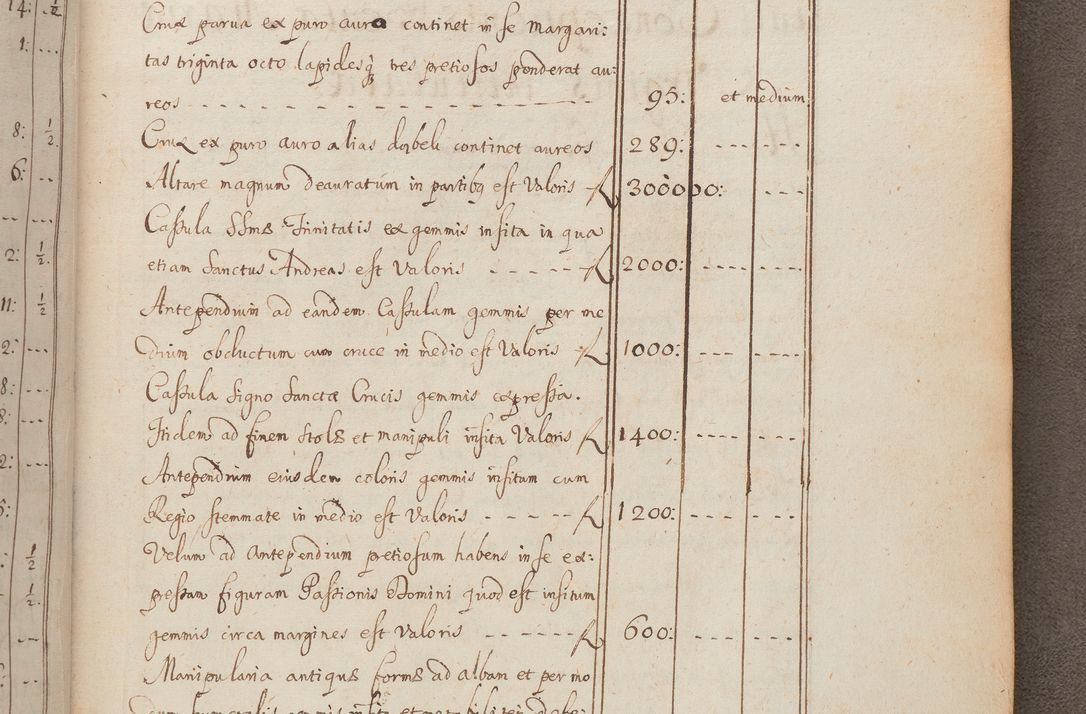 14: ½
Crux parua ex puro auro continet in se Margari:
1: ...
tas triginta octo lapidesq tres pretiosos ponderat au:
reos - - - - - - - - - - - 95: et medium
8: ½
Crux ex puro auro alias continet aureos 289: - - - - - -
6: ..
Altare magnum deauratum in partibq est Valoris 300000: - - -
Cassula SSmæ Trinitatis ex gemmis insita in qua
2: ½
etiam Sanctus Andreas est Valoris - - - - - 2000: - - - - - - - -
11: ½
Antependium ad eandem Cassulam gemmis per me
2: ...
dium obductum cum cruce in medio est Valoris 1000: - - - - - - -
8: ...
Cassula Signo Sanctæ Crucis gemmis expressa.
8: ...
Itidem ad finem Stolæ et manipuli insita Valoris 1400: - - - - - - -
2: ...
Antependium eiusdem coloris gemmis insitum cum
Regio stemmate in medio est Valoris - - - - - 1200: - - - - - - -
½
Velum ad Antependium pretiosum habens in se ex:
½
pressam figuram Passionis Domini quod est insitum
gemmis circa margines est Valoris - - - - - 600: - - - - - - -
Manipularia antiquæ formæ ad albam et per mo